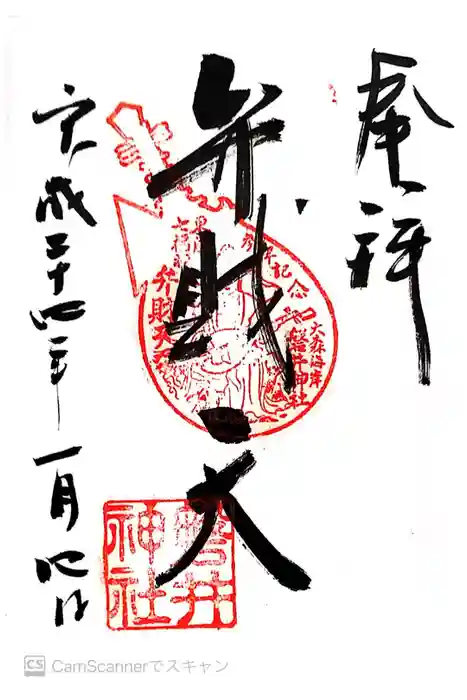 奉拝
弁財天
平成二十四年一月四日
参拝記念
大森海岸
磐井神社
弁財天
磐井
神社
CS CamScannerでスキャン